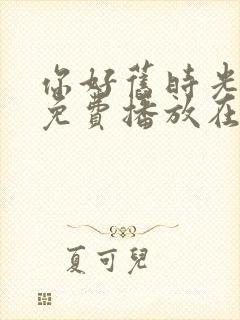 你好舊時光
免費播放在
夏可兒